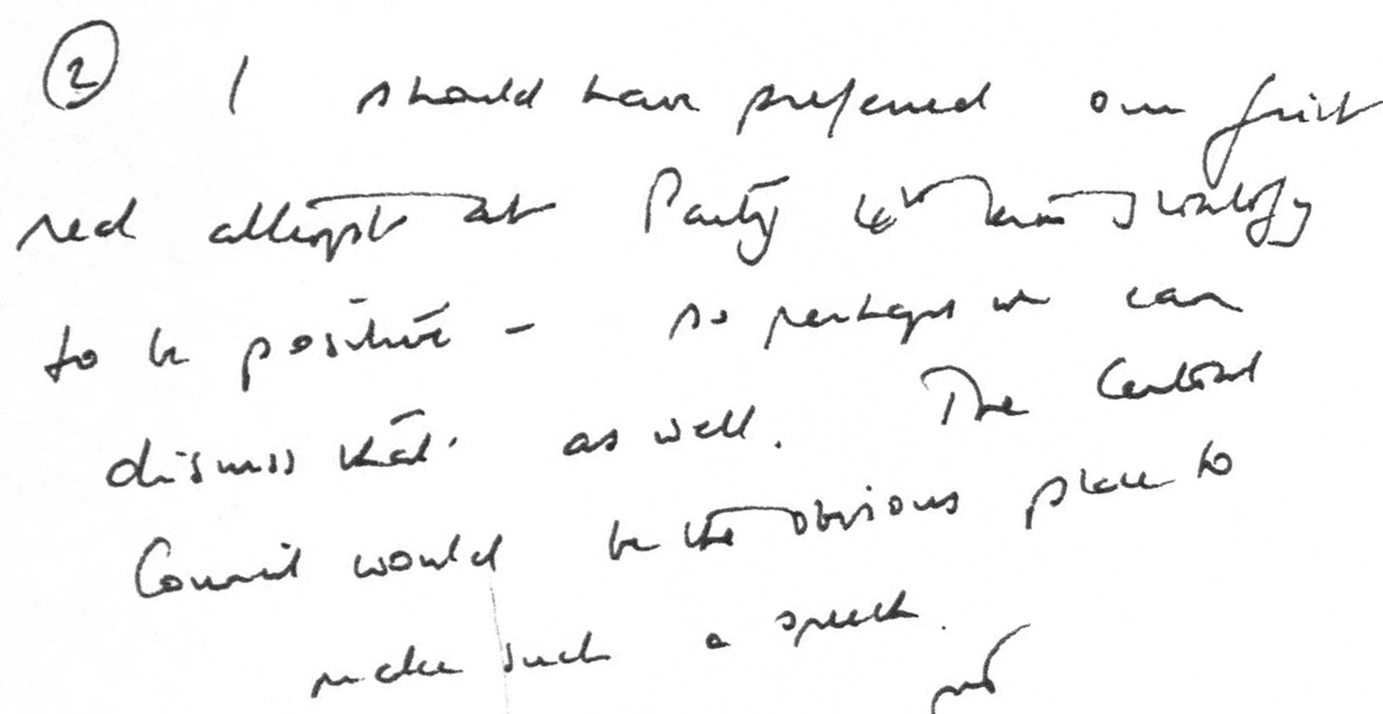 ② I should have preferred our first
real attempt at Party
to be positive - so perhaps we can
dismiss that as well. The Central
Council would be the obvious place to
make such a speech.